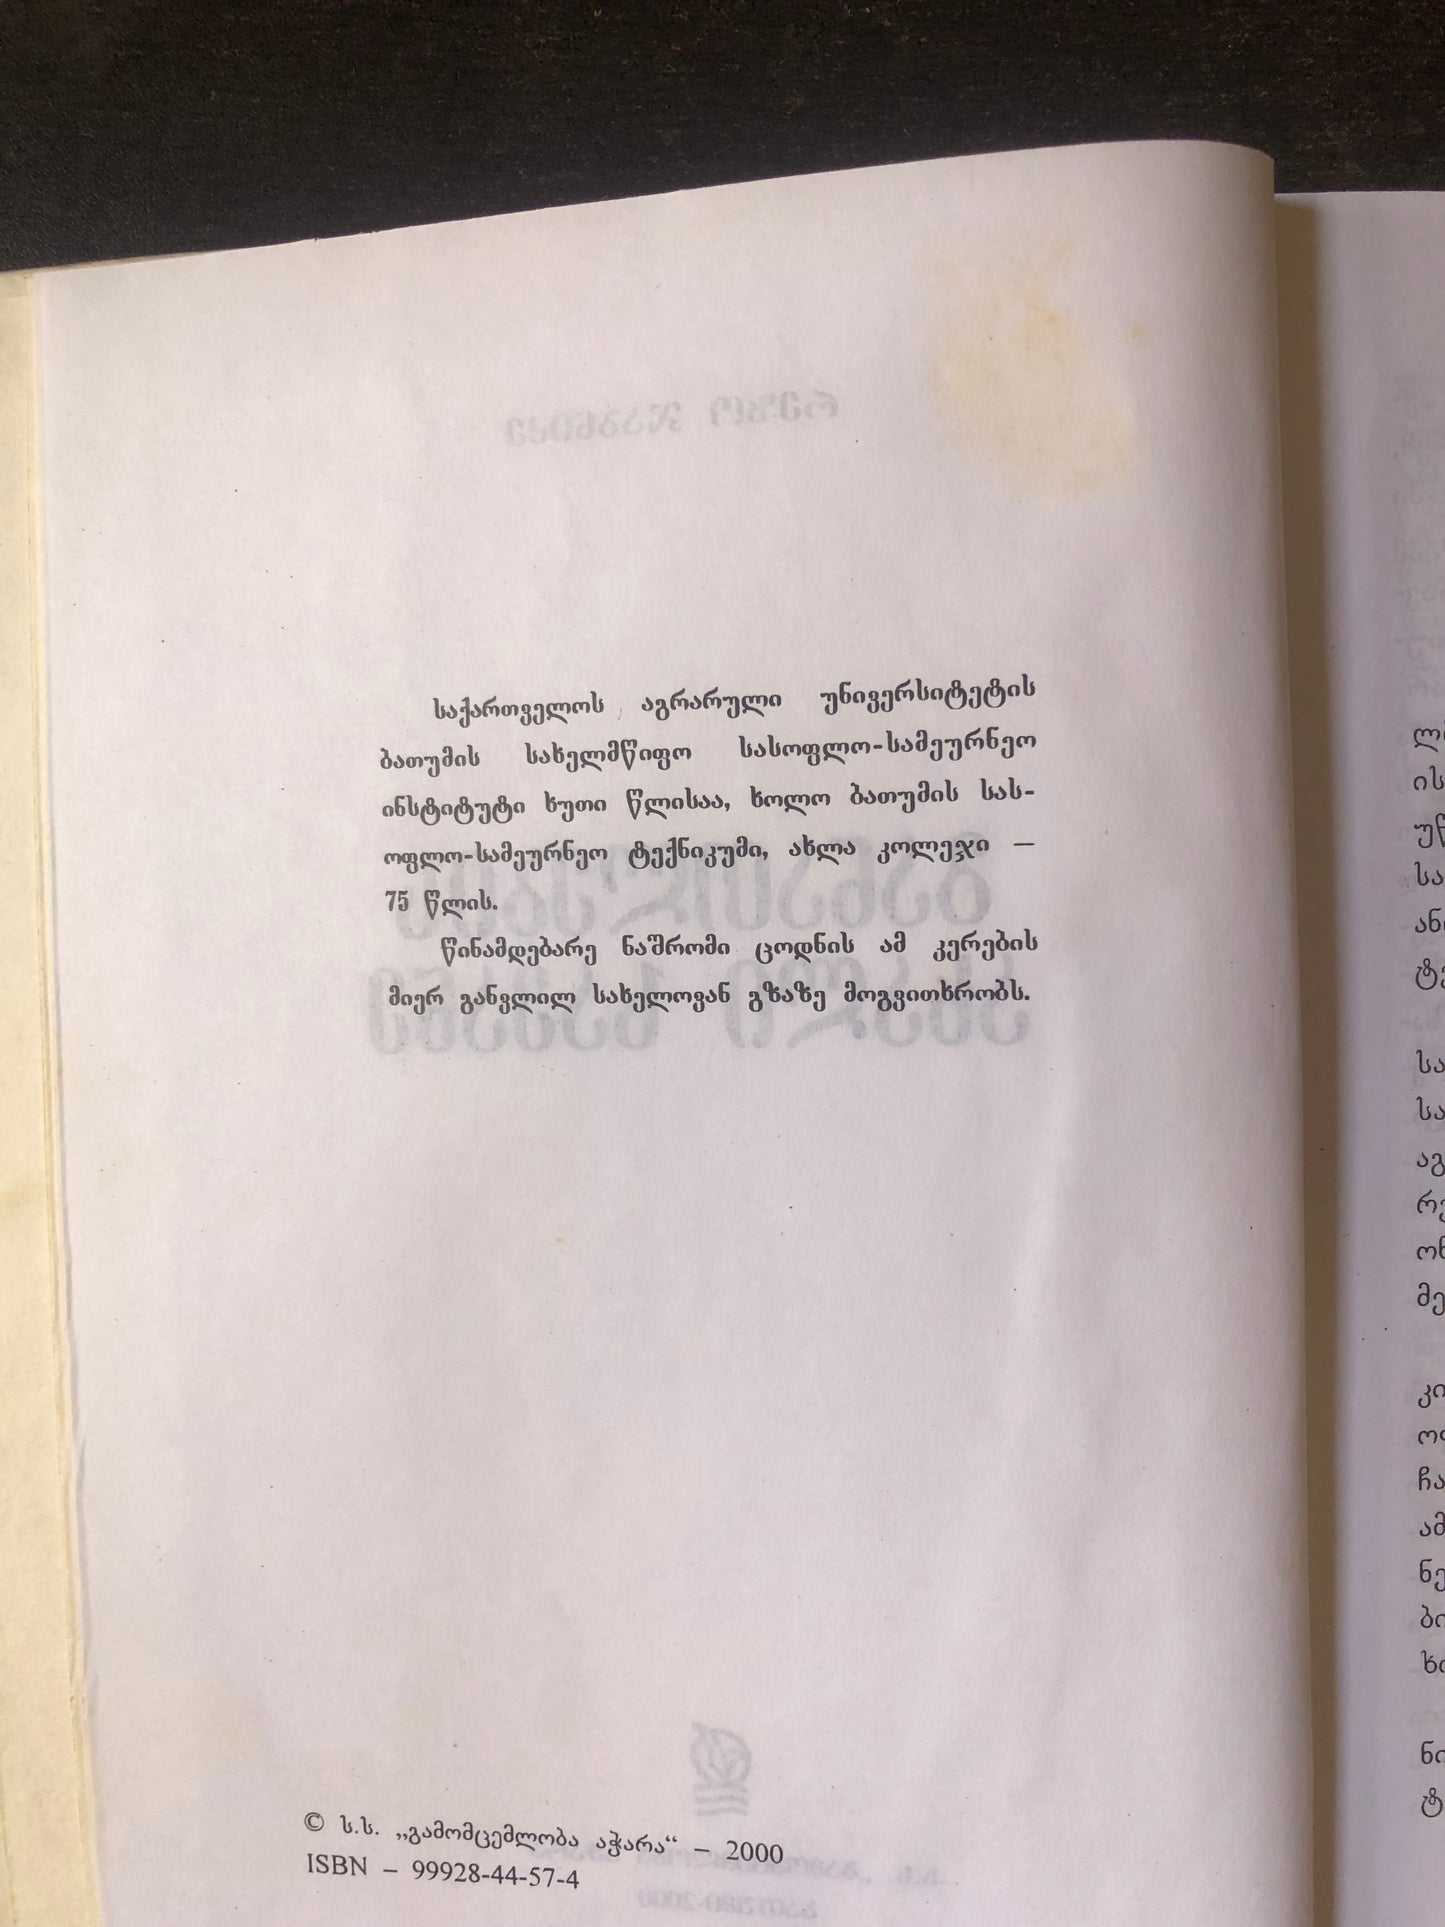 საქართველოს აგრარული უნივერსიტეტის
ბათუმის სახელმწიფო სასოფლო-სამეურნეო
ინსტიტუტი ხუთი წლისაა, ხოლო ბათუმის სას-
ოფლო-სამეურნეო ტექნიკუმი, ახლა კოლეჯი –
75 წლის.
წინამდებარე ნაშრომი ცოდნის ამ კერების
მიერ განვლილ სახელოვან გზაზე მოგვითხრობს.
© ს.ს. „გამომცემლობა აჭარა“ – 2000
ISBN – 99928-44-57-4